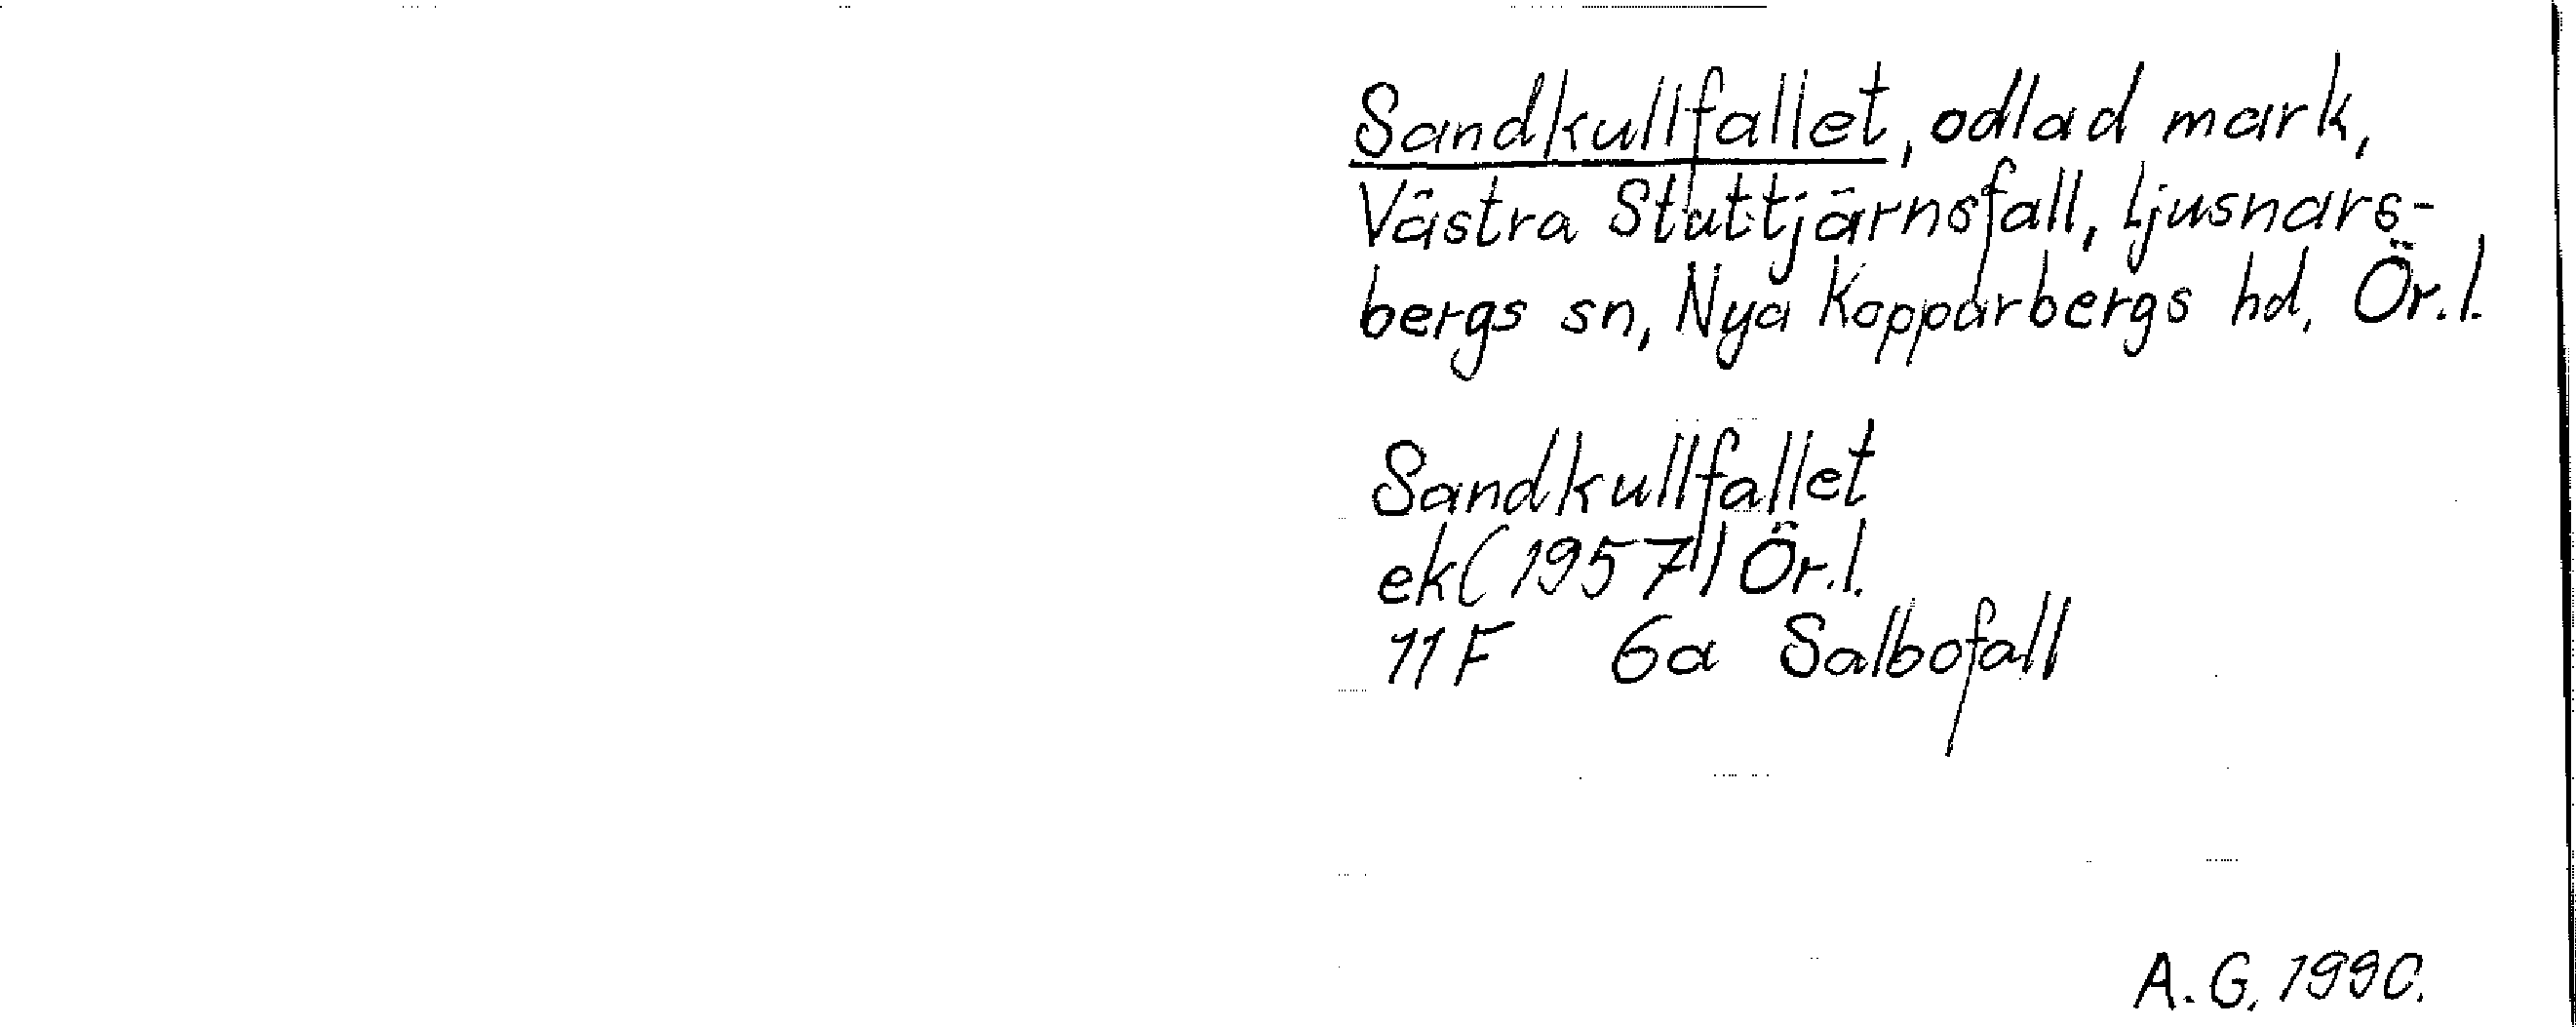 Sandkullfallet, odlad mark,
Västra Stuttjärnsfall, Ljusnars-
bergs sn, Nya Kopparbergs hd, Ör.l.
Sandkullfallet
ek(1957) Ör.l.
11F 6a Salbofall
A.G. 1990.